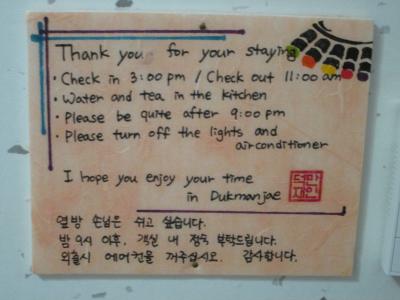 Thank you for your staying
· Check in 3:00 pm / Check out 11:00 am
· Water and tea in the kitchen
· Please be quite after 9:00 pm
· Please turn off the lights and
airconditioner
I hope you enjoy your time
in Dukmanjae
덕만
재인
옆방 손님은 쉬고 싶습니다.
밤 9시 이후, 객실 내 정숙 부탁드립니다.
외출시 에어컨을 꺼주십시오. 감사합니다.